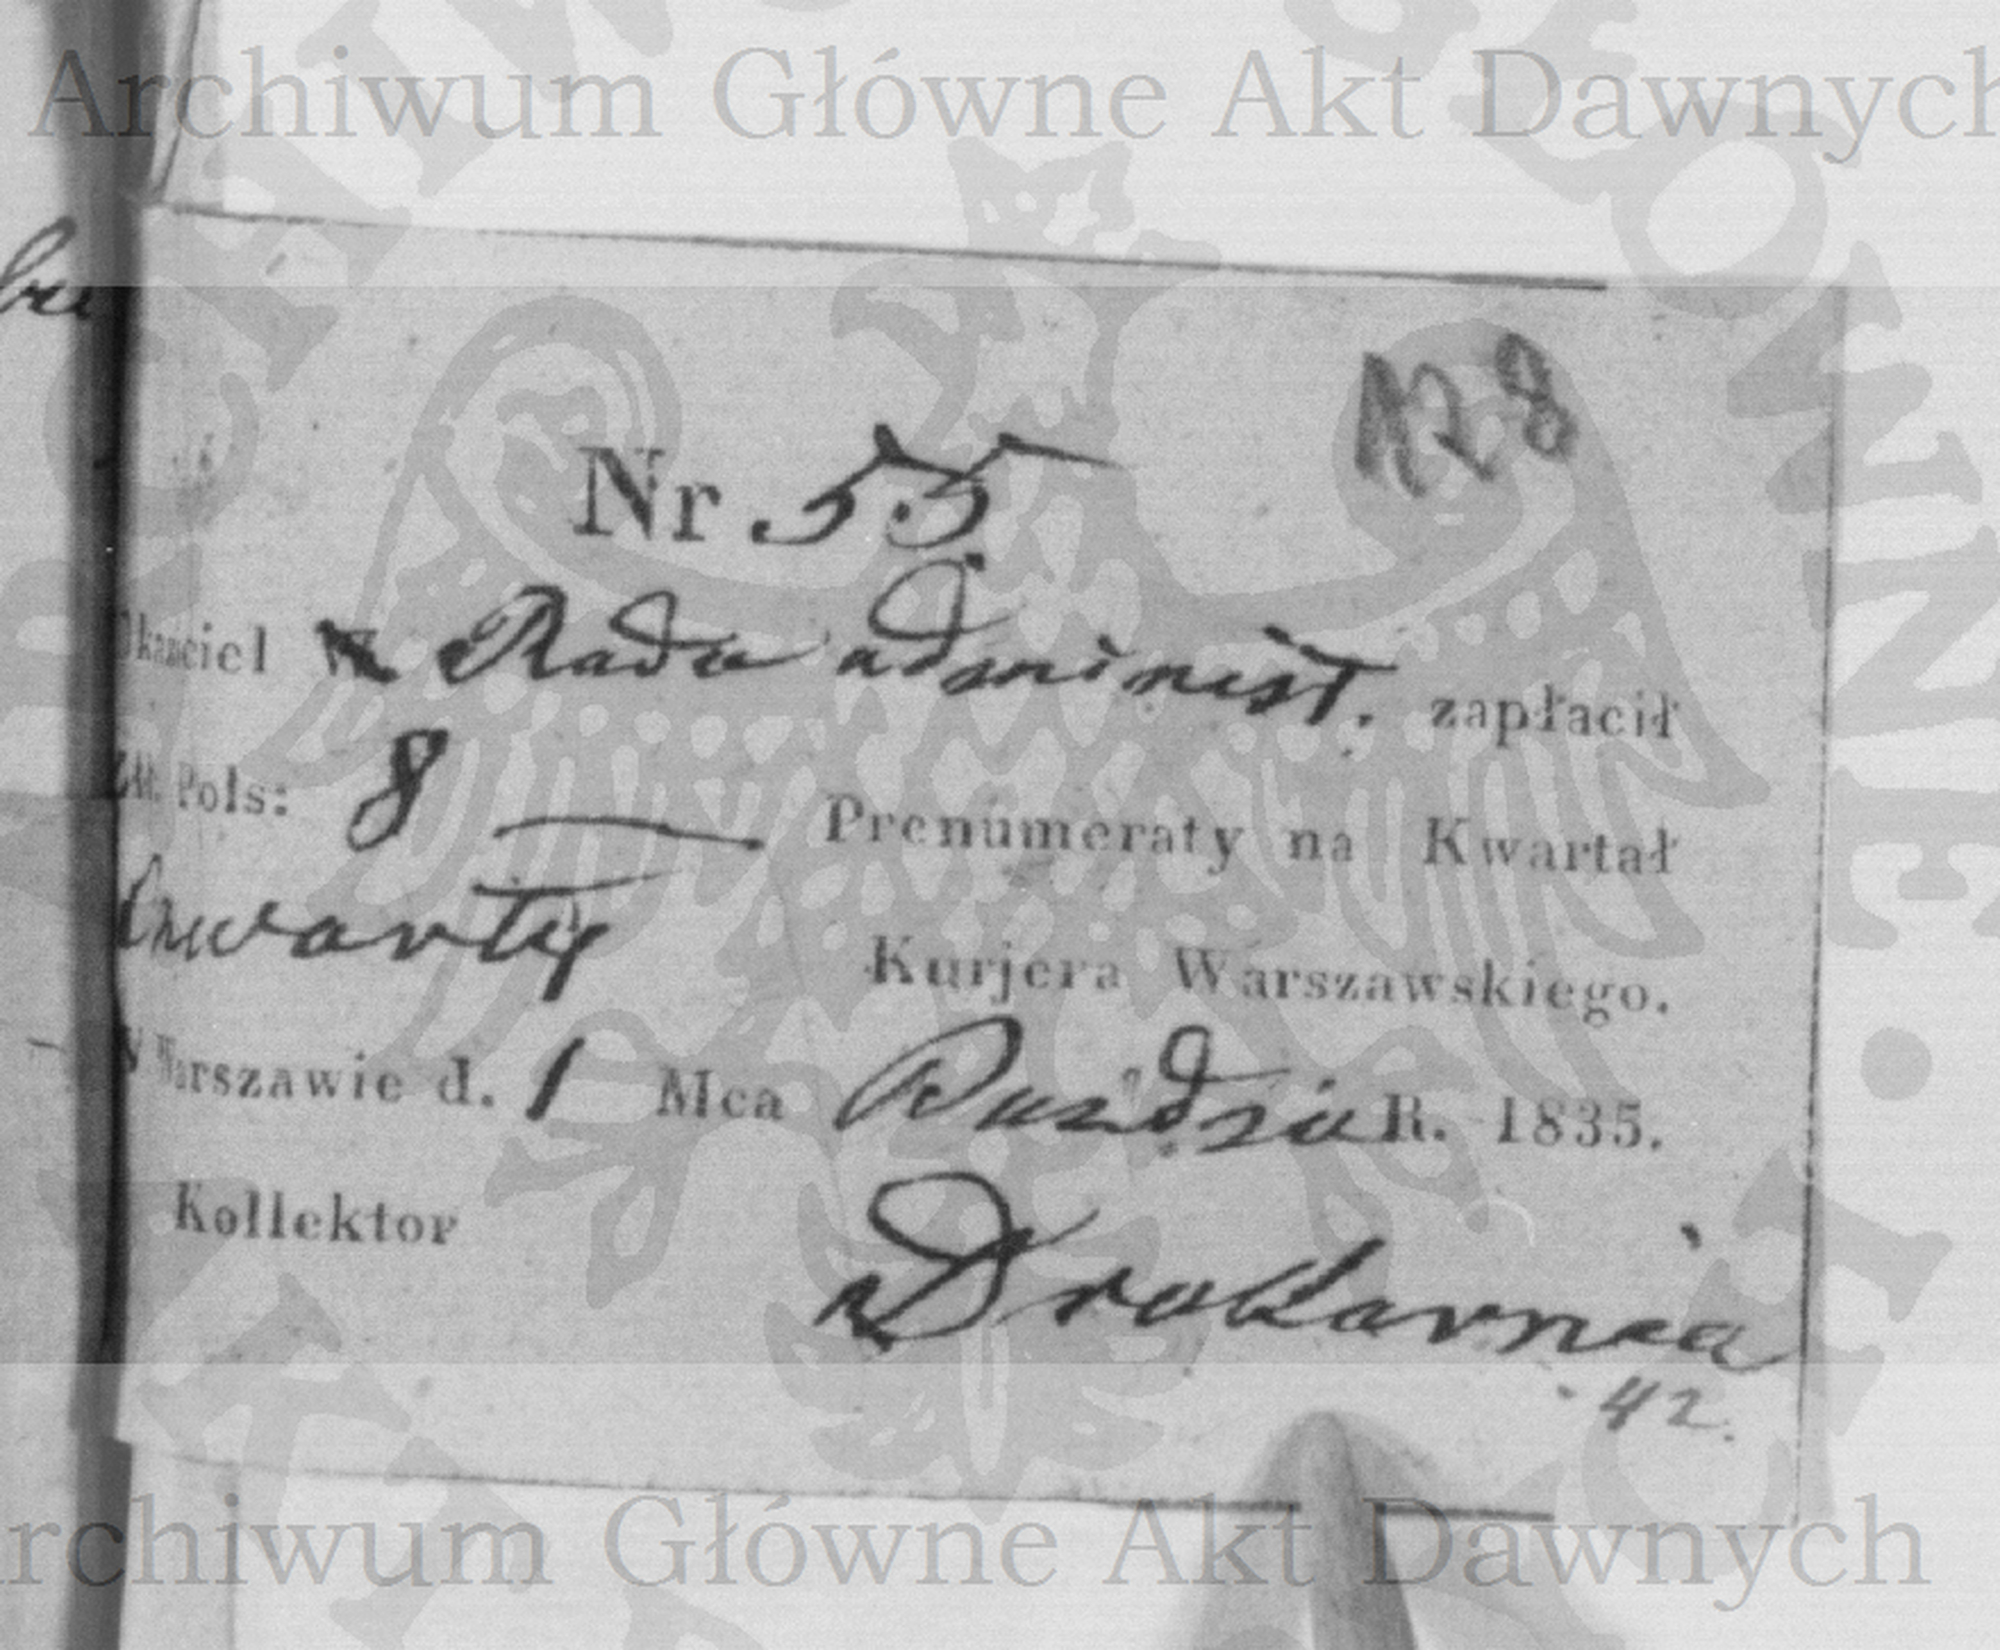 Archiwum Główne Akt Dawnych
128
Nr 55
Okaziciel W. Rada administ. zapłacił
Złt. Pols: 8 — Prenumeraty na Kwartał
Czwarty Kurjera Warszawskiego.
W Warszawie d. 1 Mca Paździe R. 1835.
Kollektor
Drukarnia
42.
Archiwum Główne Akt Dawnych